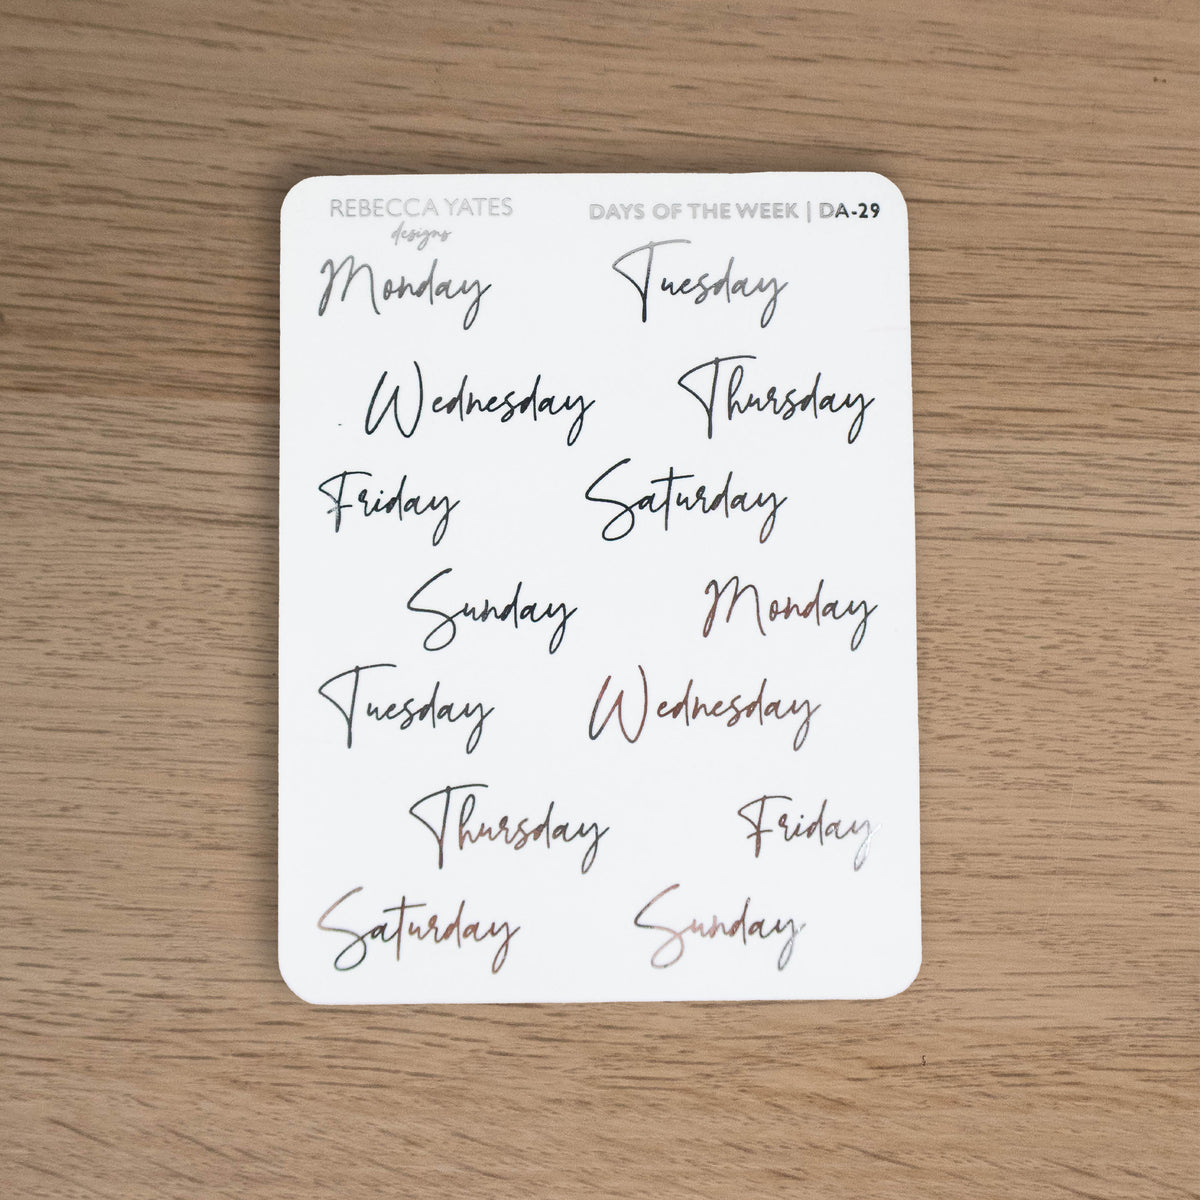 REBECCA YATES DAYS OF THE WEEK | DA-29
designs
Monday Tuesday
Wednesday Thursday
Friday Saturday
Sunday Monday
Tuesday Wednesday
Thursday Friday
Saturday Sunday